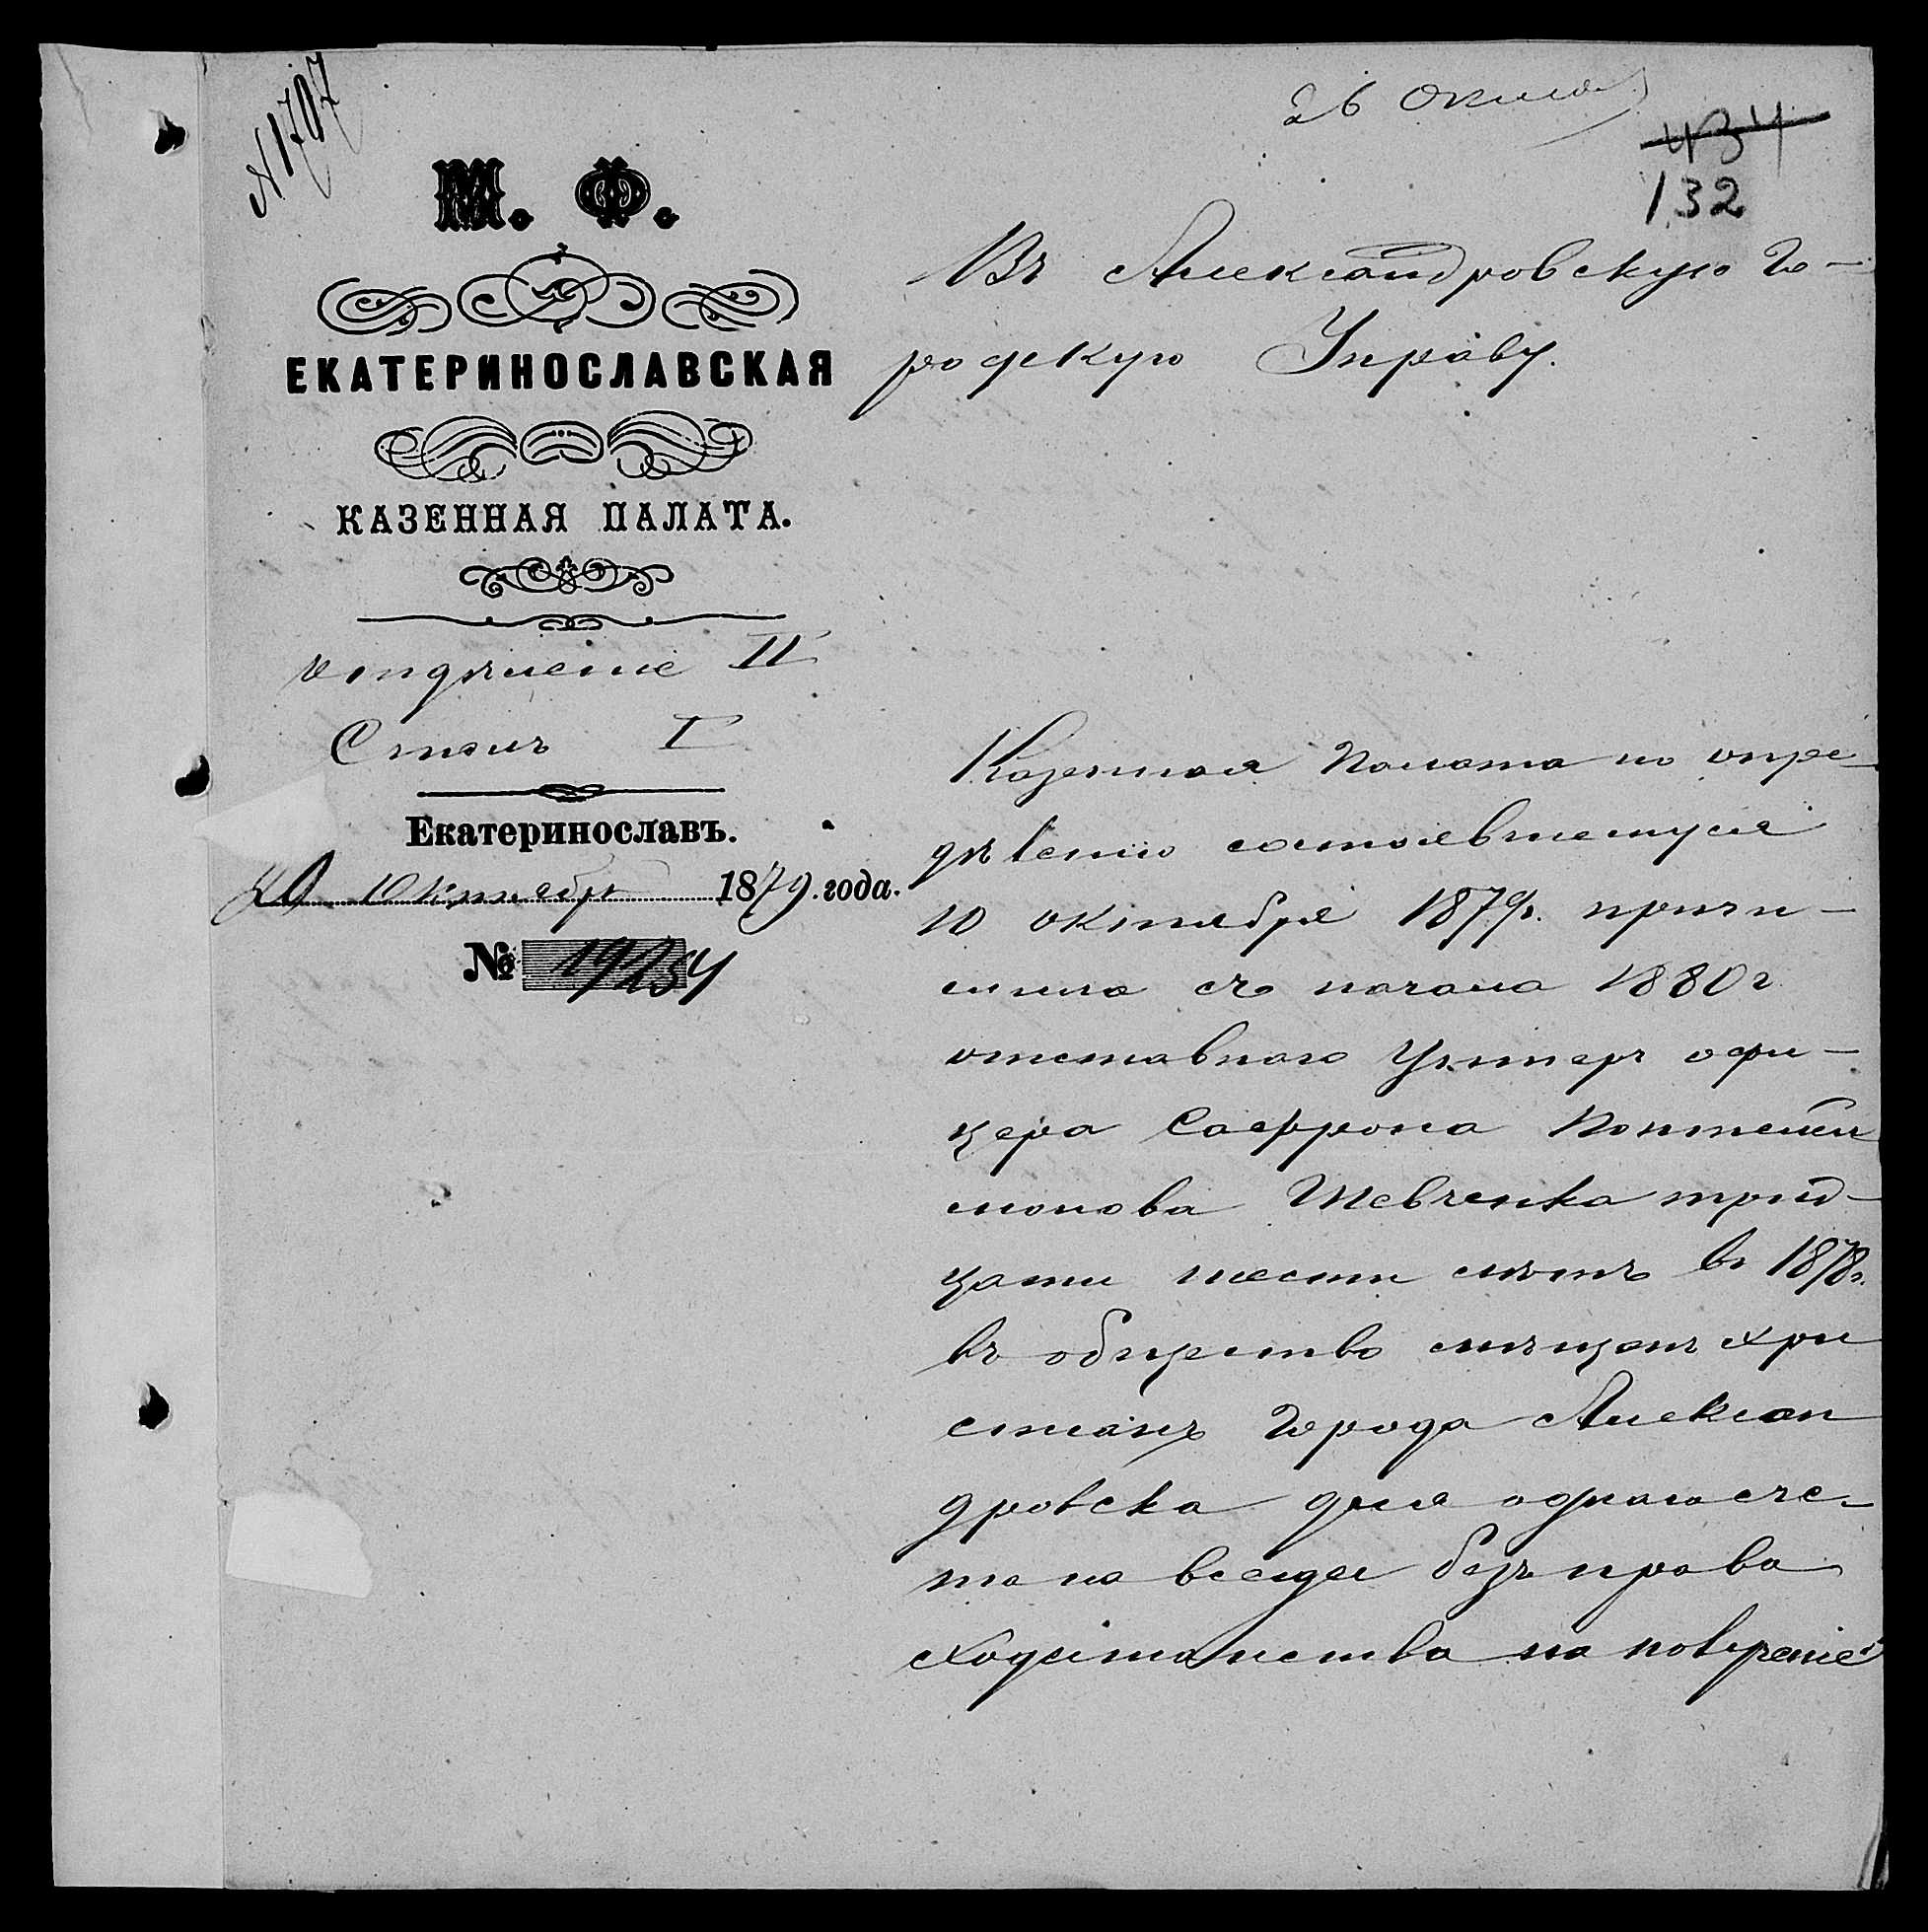 № 1797
26 Октяб.
434
132
М. Ф.
ЕКАТЕРИНОСЛАВСКАЯ
КАЗЕННАЯ ПАЛАТА.
Отдѣленіе II
Столъ I
Екатеринославъ.
20 Октября 1879 года.
№ 19254
Въ Александровскую Го-
родскую Управу.
Казенная Палата по опре-
дѣленію состоявшемуся
10 октября 1879г. причи-
слила съ начала 1880 г
отставнаго Унтеръ офи-
цера Сафрона Понтелей
монова Шевченка трид-
цати шести лѣтъ въ 1878г.
въ общество мѣщанъ хри
стіанъ города Алексан
дровска для одного сче-
та на всегда безъ права
ходатайства на